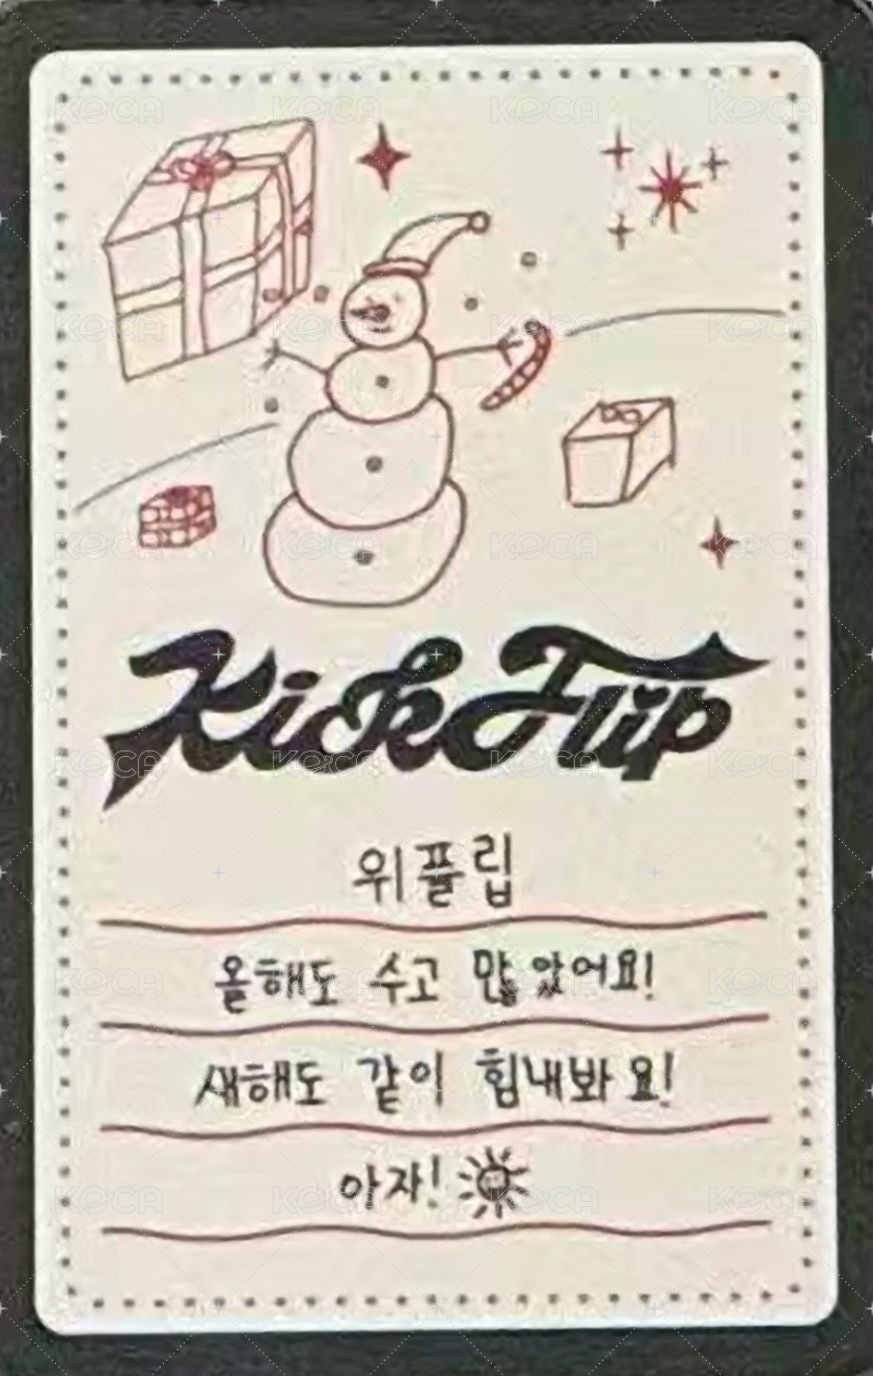 KickFlip
위플립
올해도 수고 많았어요!
새해도 같이 힘내봐요!
아자!